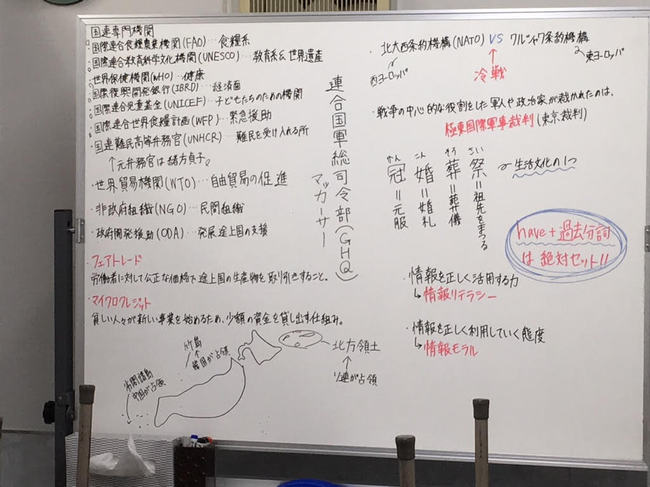 国連専門機関
国際連合食糧農業機関(FAO)…食糧系
国際連合教育科学文化機関(UNESCO)…教育系&世界遺産
世界保健機関(WHO)…健康
国際復興開発銀行(IBRD)…経済面
国際連合児童基金(UNICEF)…子どもたちのための機関
国際連合世界食糧計画(WFP)…緊急援助
国連難民高等弁務官(UNHCR)…難民を受け入れる所
↑元弁務官は緒方貞子。
・世界貿易機関(WTO)…自由貿易の促進
・非政府組織(NGO)…民間組織
・政府開発援助(ODA)…発展途上国の支援
・フェアトレード
労働者に対して公正な価格で途上国の生産物を取り引きすること。
・マイクロクレジット
貧しい人々が新しい事業を始めるため、少額の資金を貸し出す仕組み。
竹島
↑
韓国が占領
中国が占領
北方領土
↑
ソ連が占領
連合国軍総司令部(GHQ)
マッカーサー
・北大西条約機構(NATO) VS ワルシャワ条約機構
西ヨーロッパ
東ヨーロッパ
↑
冷戦
・戦争の中心的な役割をした軍人や政治家が裁かれたのは、
極東国際軍事裁判(東京裁判)
かん こん そう さい
冠=元服
婚=婚礼
葬=葬儀
祭=祖先をまつる
生活文化の1つ
have+過去分詞
は絶対セット!!
・情報を正しく活用する力
↳情報リテラシー
・情報を正しく利用していく態度
↳情報モラル